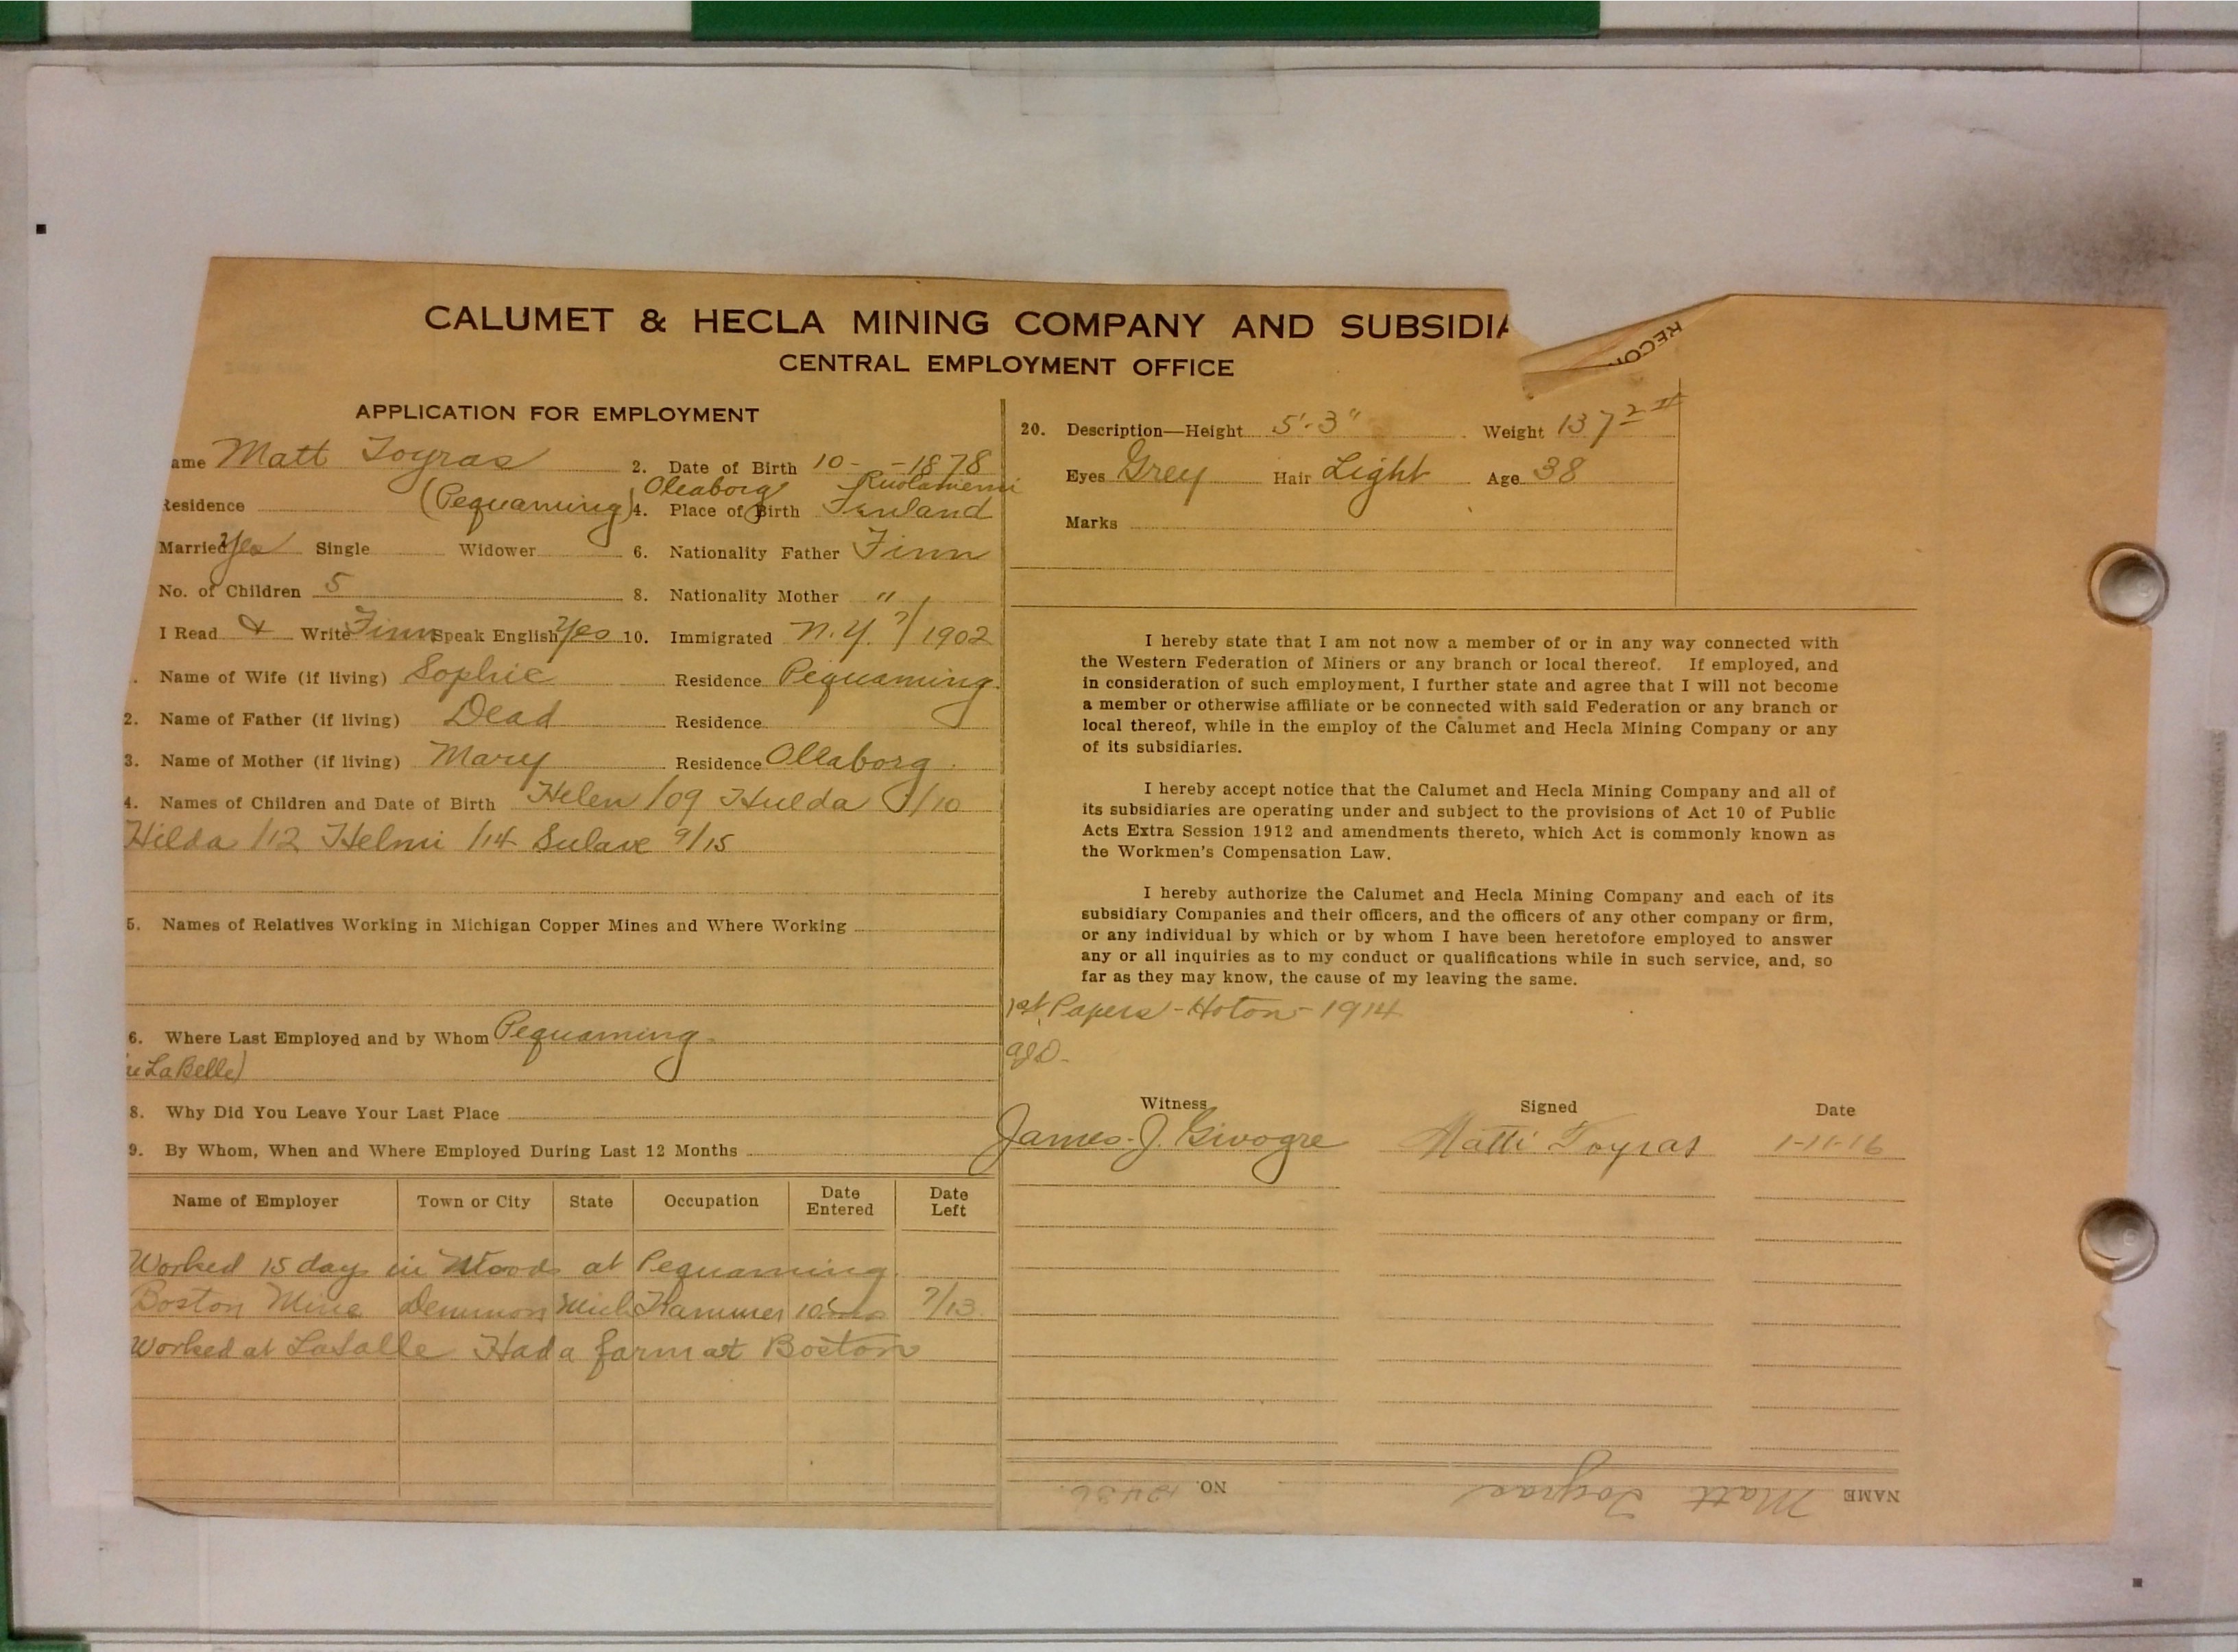 CALUMET & HECLA MINING COMPANY AND SUBSIDIA
CENTRAL EMPLOYMENT OFFICE
RECO
APPLICATION FOR EMPLOYMENT
ame Matt Toyras 2. Date of Birth 10- -1878
Oleaborg
Residence (Pequaming) 4. Place of Birth Finland
Married Yes Single Widower 6. Nationality Father Finn
No. of Children 5 8. Nationality Mother "
I Read & Write Finn Speak English Yes 10. Immigrated N.Y. 7/1902
. Name of Wife (if living) Sophie Residence Pequaming
2. Name of Father (if living) Dead Residence
3. Name of Mother (if living) Mary Residence Olleaborg
4. Names of Children and Date of Birth Helen /09 Hulda /10
Hilda /12 Helmi /14 Sulave 9/15
5. Names of Relatives Working in Michigan Copper Mines and Where Working
6. Where Last Employed and by Whom Pequaming
LaBelle)
8. Why Did You Leave Your Last Place
9. By Whom, When and Where Employed During Last 12 Months
Name of Employer Town or City State Occupation Date Entered Date Left
Worked 15 days in Woods at Pequaming.
Boston Mine Demmon Mich Trammer 7/13
Worked at LaSalle Had a farm at Boston
20. Description—Height 5'-3" Weight 137
Eyes Grey Hair Light Age 38
Marks
I hereby state that I am not now a member of or in any way connected with
the Western Federation of Miners or any branch or local thereof. If employed, and
in consideration of such employment, I further state and agree that I will not become
a member or otherwise affiliate or be connected with said Federation or any branch or
local thereof, while in the employ of the Calumet and Hecla Mining Company or any
of its subsidiaries.
I hereby accept notice that the Calumet and Hecla Mining Company and all of
its subsidiaries are operating under and subject to the provisions of Act 10 of Public
Acts Extra Session 1912 and amendments thereto, which Act is commonly known as
the Workmen's Compensation Law.
I hereby authorize the Calumet and Hecla Mining Company and each of its
subsidiary Companies and their officers, and the officers of any other company or firm,
or any individual by which or by whom I have been heretofore employed to answer
any or all inquiries as to my conduct or qualifications while in such service, and, so
far as they may know, the cause of my leaving the same.
1st Papers - Hoton - 1914
Witness Signed Date
James J. Givogre Matti Toyras 1-11-16
NAME Matt Toyras NO. 12436